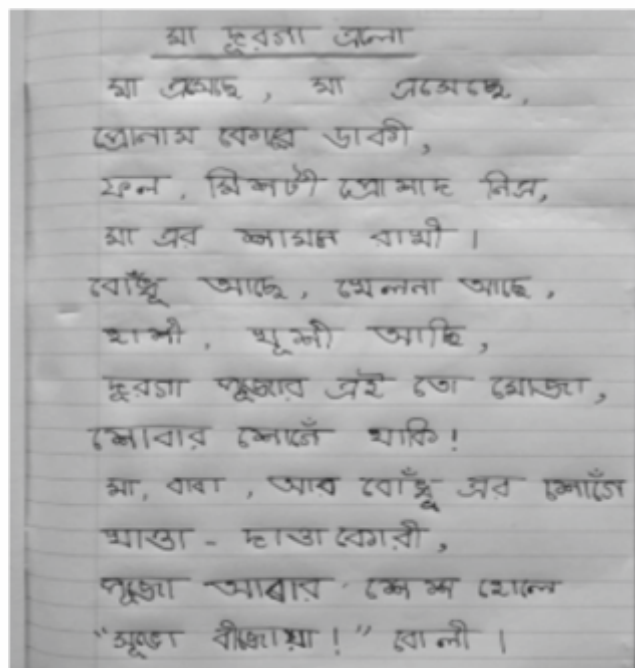 মা দূরগা এলো
মা এসেছে, মা এসেছে,
প্রোনাম কোরে ডাকী,
ফল, মিশটী প্রোসাদ নিএ,
মা এর শামনে রাখী।
বোঁধূ আছে, খেলনা আছে,
হাশী, খূশী আছি,
দূরগা পূজার এই তো মোজা,
শোবার শোনেঁ থাকি!
মা, বাবা, আর বোঁধূ এর শোগেঁ
খাওা - দাওা কোরী,
পূজো আবার শেশ হোলে
"সূভো বীজোয়া!" বোলী।